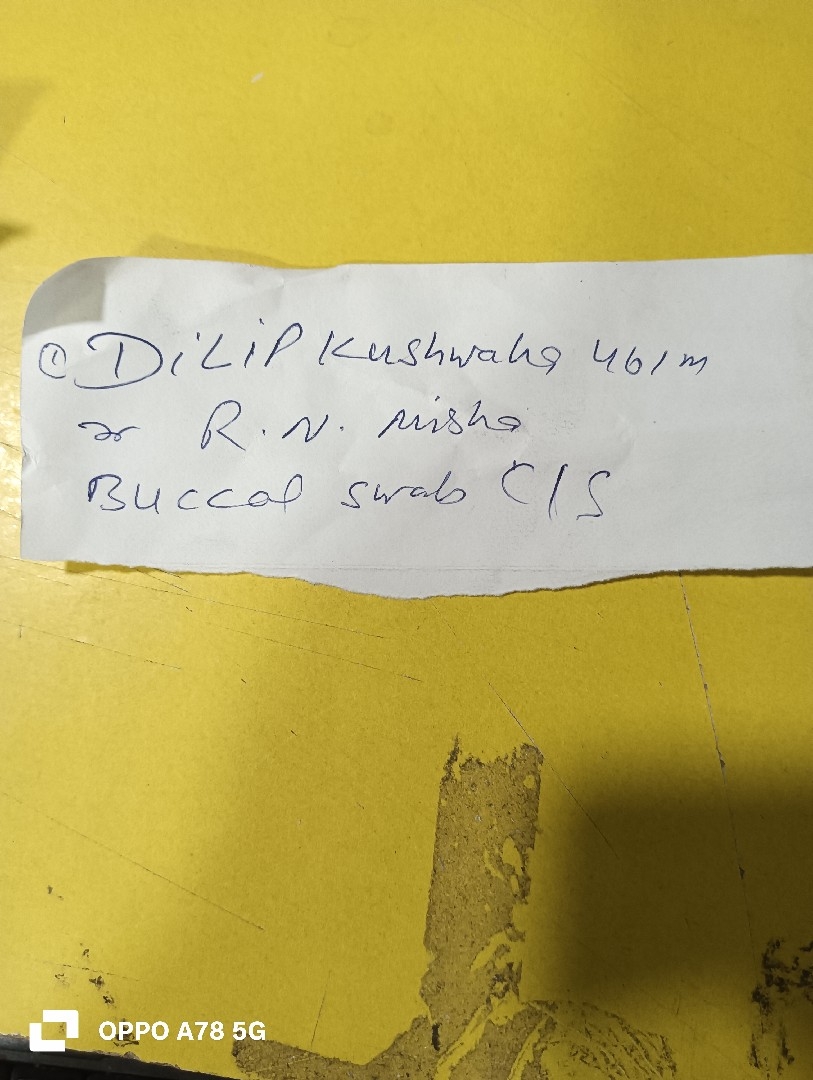 ① DiLiP Kushwaha 46/m
Dr R. N. Mishra
Buccal swab C/S
OPPO A78 5G